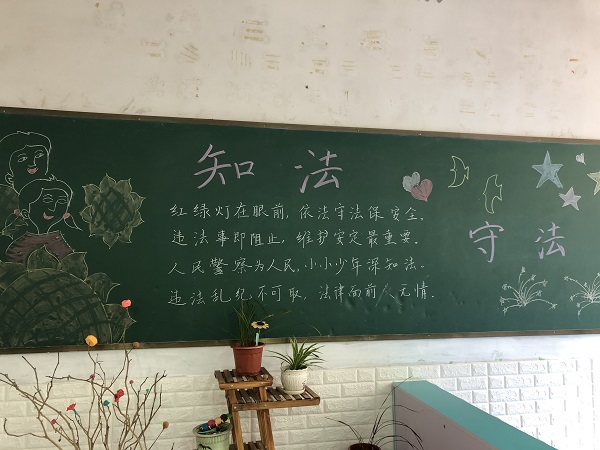 知法
红绿灯在眼前，依法守法保安全。
违法事即阻止，维护安定最重要。
人民警察为人民，小小少年深知法。
违法乱纪不可取，法律面前人无情。
守法